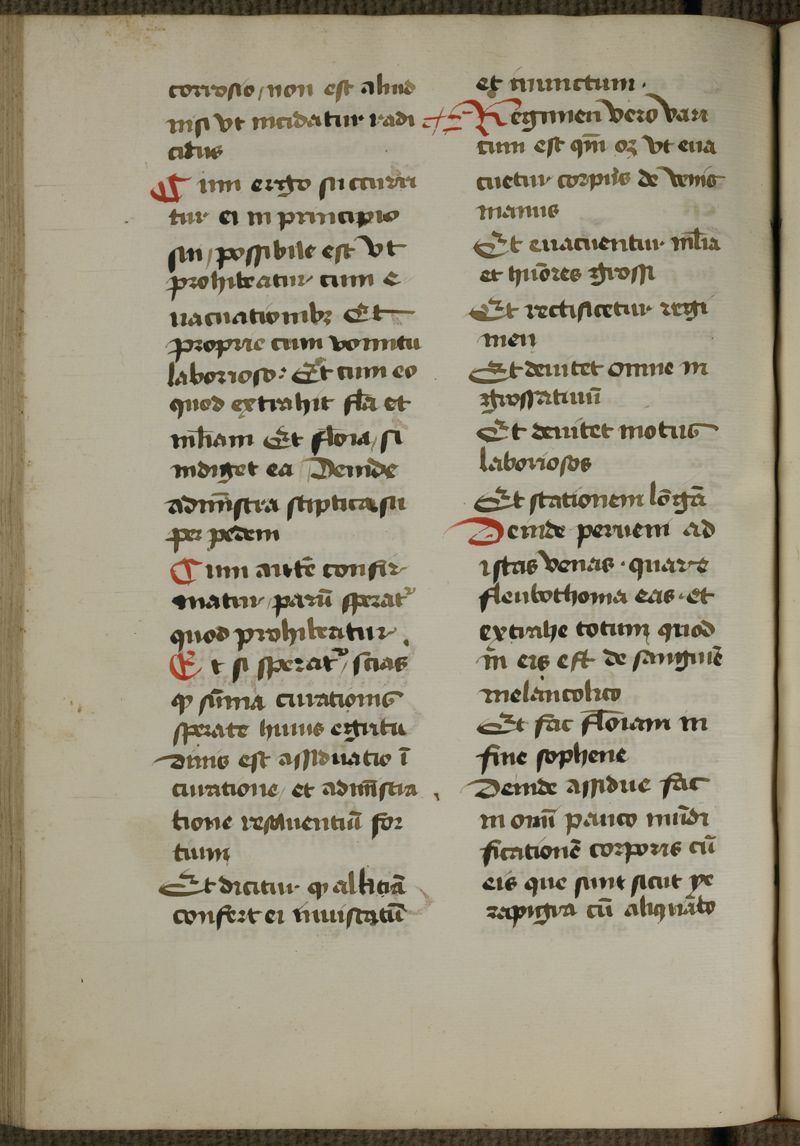 corrosio / non est aliud
nisi vt incidatur radi
citus
Cum ergo succurri
tur ei in principio
sui / possibile est vt
prohibeatur cum e
uacuationibꝫ Et
proprie cum vomitu
laborioso: Et cum eo
quod extrahit fla͞ et
mh͞am Et flo͞ia / si
indiget ea Deinde
admi͞stra stiptica su
per pedem
Cum aute͞ confir
matur / paru͞ sperat᷑
quod prohibeatur
Et si sperat᷑ / scias
ꝙ su͞ma curationis
sperate huius egritu
dinis est assiduatio i͞
curatione / et admi͞stra
tione resoluentiu͞ for
tium
Et dicitur ꝙ alkitra͞
confert ei inuistatu͞
et inunctum .
Regimen vero vari
cum est qm͞ oꝫ vt eua
cuetur corpus de venis
manus
Et euacuentur mh͞ia
et hu͞ores grossi
Et rectificetur regi
men
Et deuitet omne in
grossatiuu͞
Et deuitet motus
laboriosos
Et stationem lo͞ga͞
Deinde peruem ad
istas venas . quare
fleubothoma eas . et
extrahe totum quod
in eis est de sanguine͞
melancolico
Et fac flo͞iam in
fine sophene
Deinde assidue fac
in omi͞ pauco mu͞di
ficatione͞ corporis cu͞
eis que sunt sicut ye
rapigra cu͞ aliqua͞to